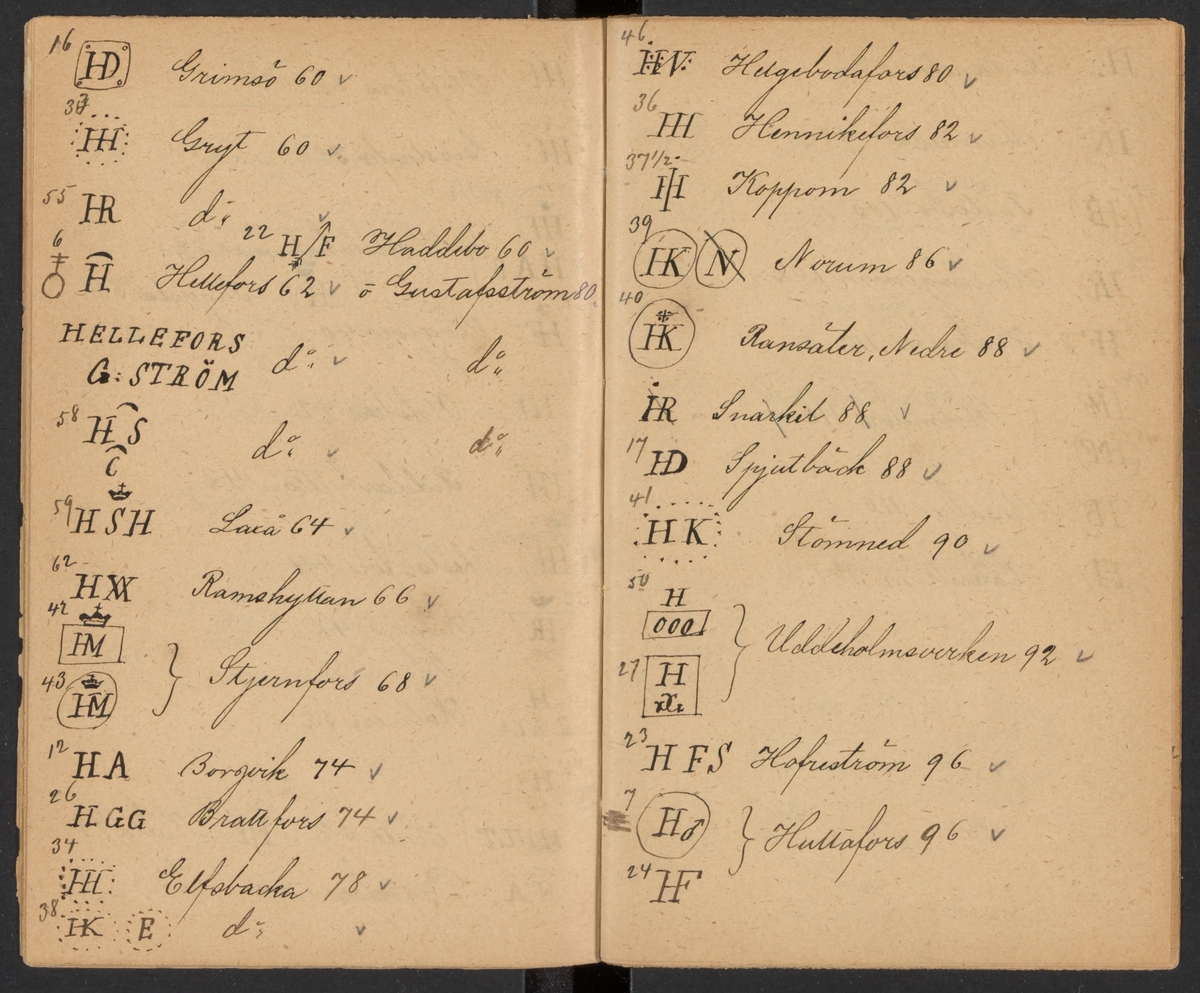 16 HD Grimsö 60 ✓
37 HH Gryt 60 ✓
55 HR do ✓
22 H/F Haddebo 60 ✓
6 H Hellefors 62 ✓ o Gustafsström 80
HELLEFORS
G: STRÖM do ✓ do
58 H S do ✓ do
C
59 H S H Laxå 64 ✓
62 HW Ramshyttan 66 ✓
42 HM
43 HM } Stjernfors 68 ✓
12 HA Borgvik 74 ✓
26 H GG Brattfors 74 ✓
34 HH Elfsbacka 78 ✓
38 HK E do ✓
46 HN Helgebodafors 80 ✓
36 HH Hennikefors 82 ✓
37 1/2 HH Koppom 82 ✓
39 HK N Norum 86 ✓
40 HK Ransäter, Nedre 88 ✓
HR Snarkil 88 ✓
17 HD Spjutbäck 88 ✓
41 H K Stömned 90 ✓
50 H
000
27 H } Uddeholmsverken 92 ✓
23 H FS Hofreström 96 ✓
7 H♂ } Huttafors 96 ✓
24 HF